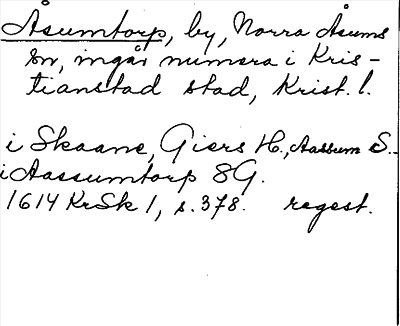 Åsumtorp, by, Norra Åsums
sn, ingår numera i Kris-
tianstad stad, Krist. l.
i Skaane, Giers H., Aassum S.
i Aassumtorp 8G.
1614 KrSk 1, s. 378. regest.